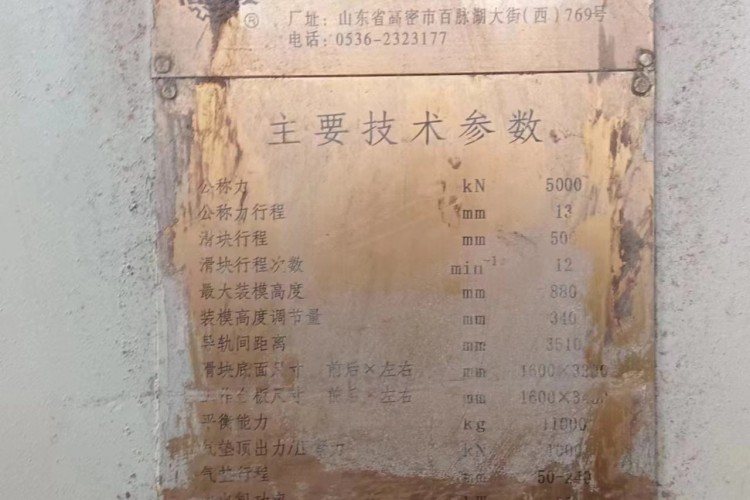 厂址：山东省高密市百脉湖大街(西)769号
电话：0536-2323177
主要技术参数
公称力 kN 5000
公称力行程 mm 13
滑块行程 mm
滑块行程次数 min⁻¹ 12
最大装模高度 mm 880
装模高度调节量 mm 340
导轨间距离 mm 3510
滑块底面尺寸 前后×左右 mm
工作台板尺寸 前后×左右 mm
平衡能力 kg
气垫顶出力 kN
气垫行程 mm